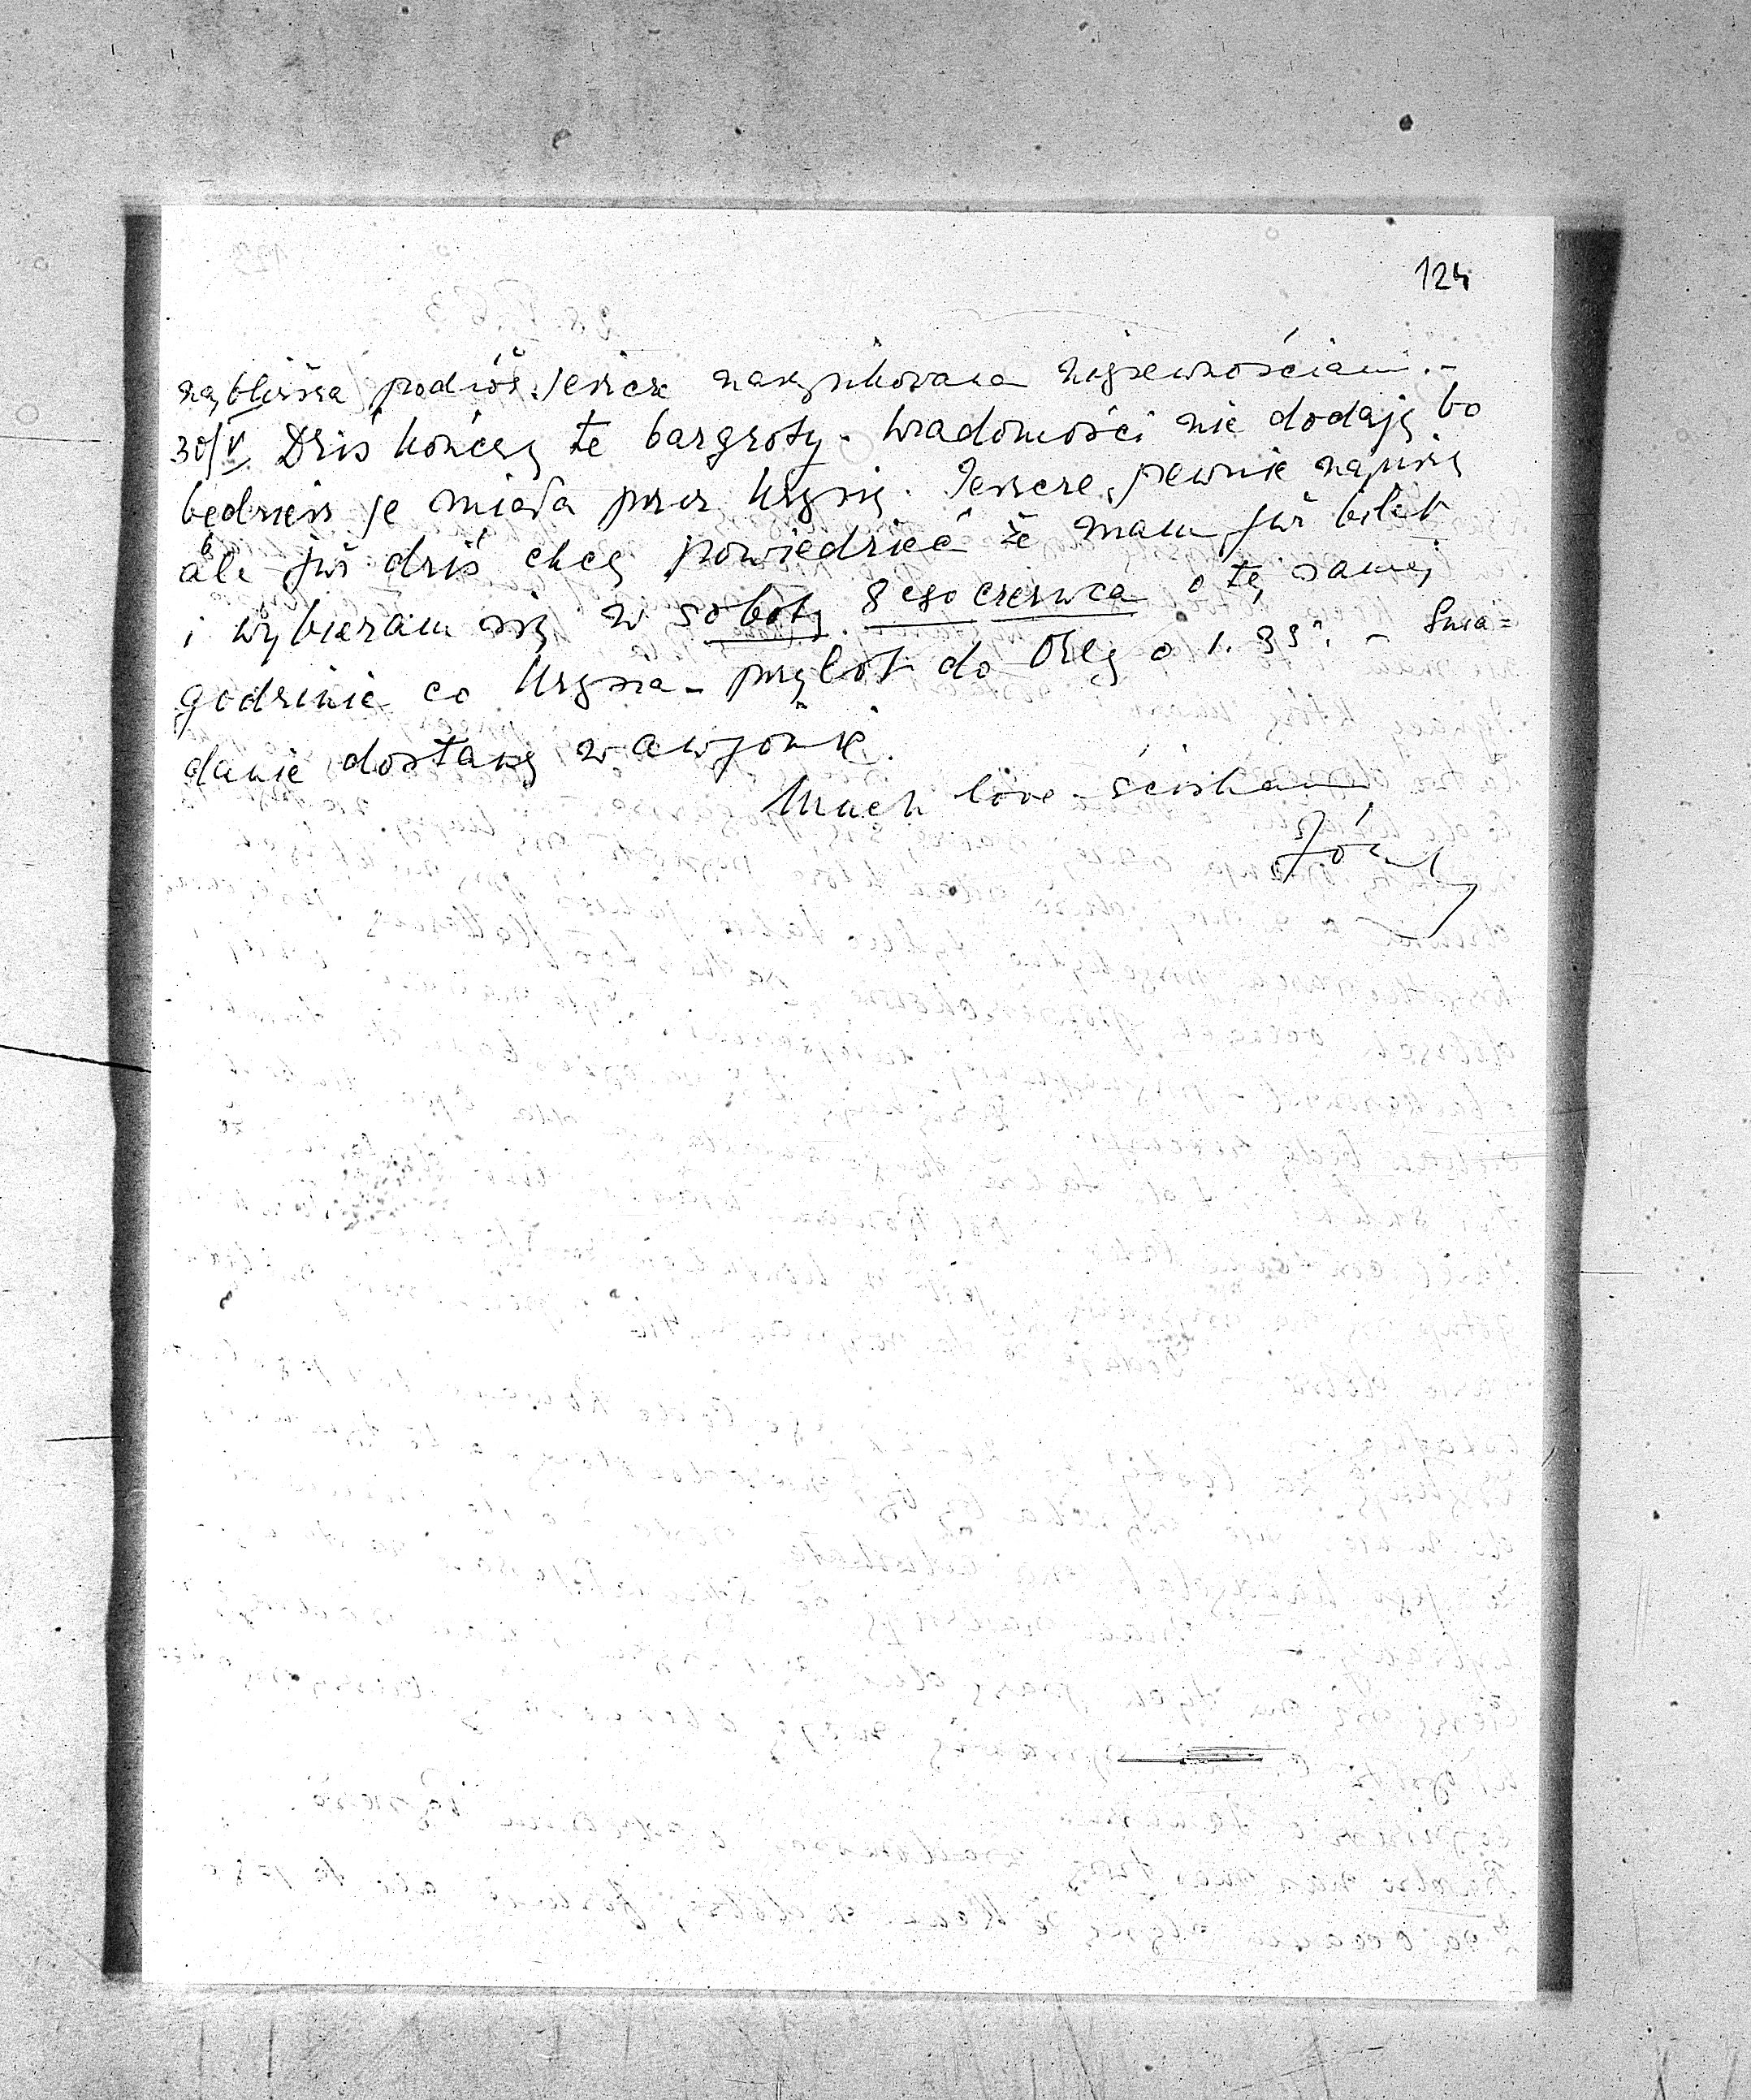 124
najbliższa podróż. Jeszcze naszpikowana niepewnościami. -
30/V. Dziś kończę te bazgroty. Wiadomości nie dodaję bo
będziesz je miała przez Krzysię. Jeszcze pewnie napiszę
ale już dziś chcę powiedzieć że mam już bilet
i wybieram się w sobotę 8ego czerwca o tej samej
godzinie co Krzysia - przylot do Orly o 1. - Śnia=
danie dostanę w awionie.
Much love - ściskam
Józ